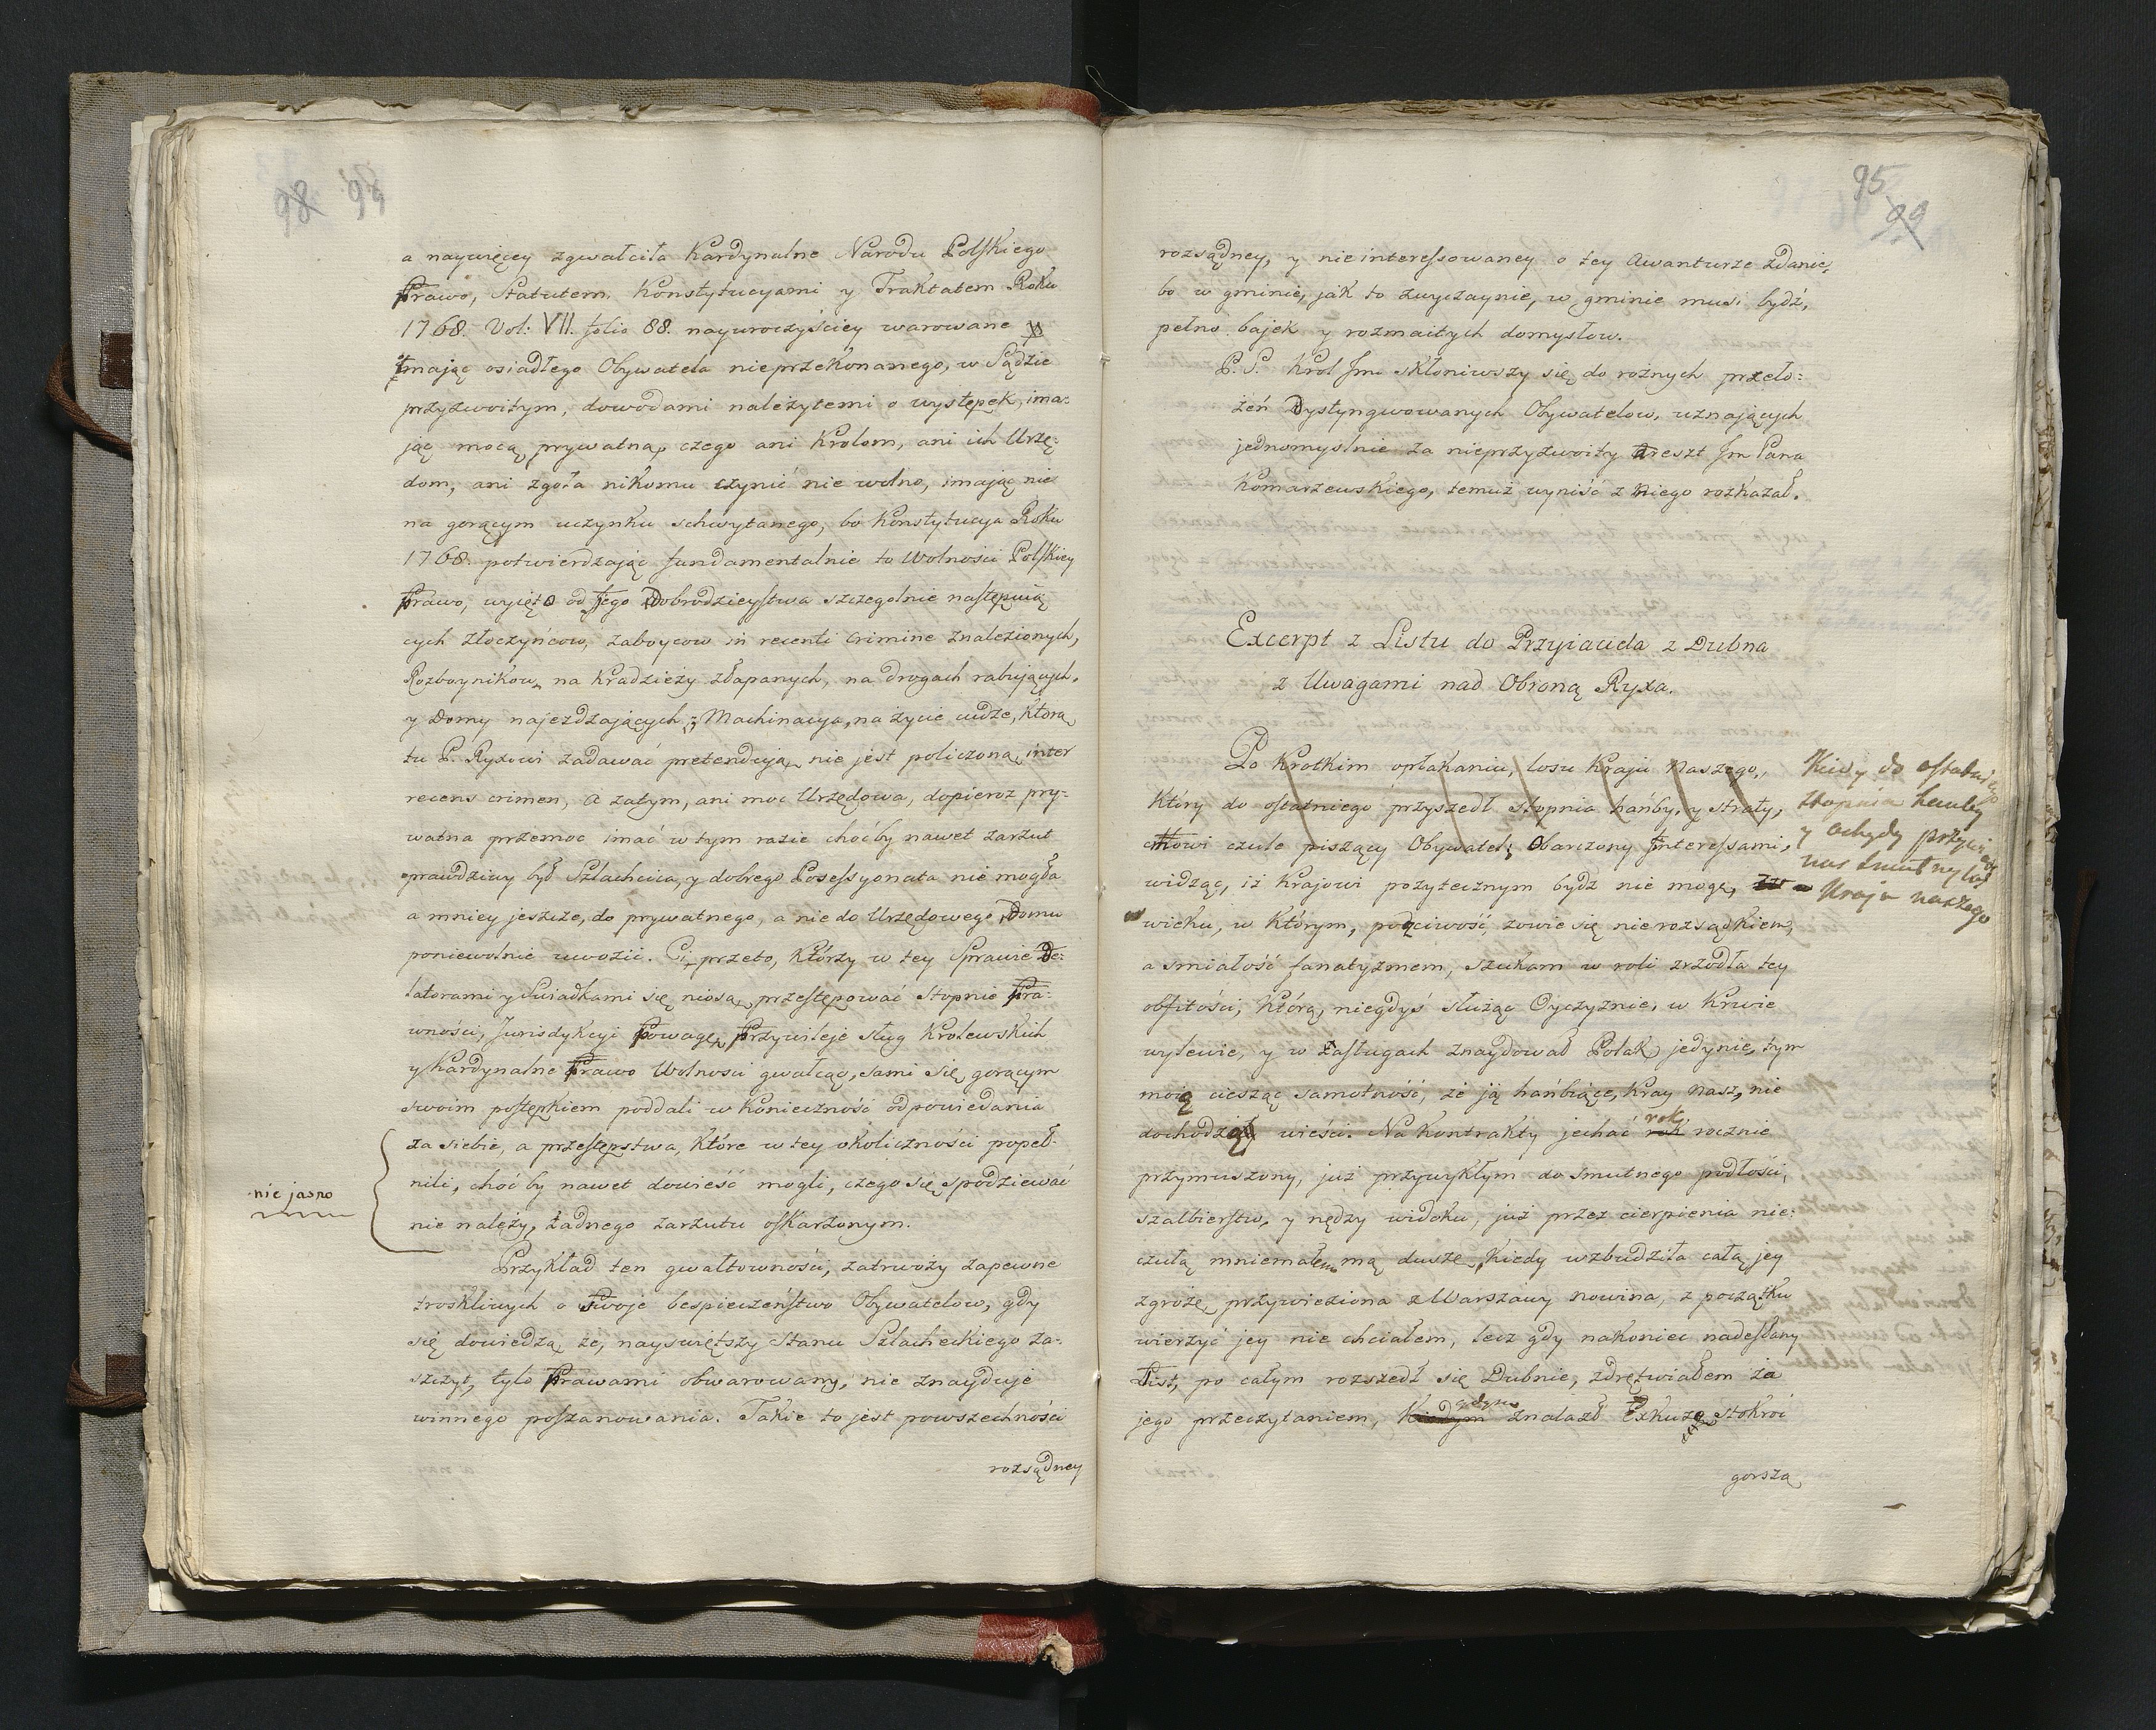 98 94
a naywięcey zgwałciła Kardynalne Narodu Polskiego
Prawo, Statutem Konstytucyami y Traktatem Roku
1768. Vol: VII. folio 88. nayuroczyściey warowane
imając osiadłego Obywatela nieprzekonanego, w Sądzie
przyzwoitym, dowodami należytemi o występek, ima:
jąc mocą prywatną, czego ani Krolom, ani ich Urzę:
dom, ani zgoła nikomu czynić nie wolno, imając nie
na gorącym uczynku schwytanego, bo Konstytucya Roku
1768. potwierdzając fundamentalnie to Wolności Polskiey
Prawo, wyięto od Jego Dobrodzieystwa szczegolnie następuią
cych złoczyńcow, zaboycow in recenti crimine znalezionych,
Rozboynikow, na Kradzieży złapanych, na drogach rabujących,
y Domy najezdzających; Machinacya, na życie cudze, którą
tu P. Ryxowi zadawać pretendują, nie jest policzona inter
recens crimen, a zatym, ani moc Urzędowa, dopieroż pry-
watna przemoc imać w tym razie choćby nawet zarzut
prawdziwy był Szlachcica, y dobrego Posessyonata nie mogła
a mniey jeszcze, do prywatnego, a nie do Urzędowego Domu
poniewolnie uwozić. Ci przeto, którzy w tey Sprawie De:
latorami y Swiadkami się niosą, przestępować stopnie Pra:
wności, Jurisdykcyi Powagę, Przywileje sług Krolewskich
y Kardynalne Prawo Wolności gwałcąc, sami się gorącym
swoim postępkiem poddali w Konieczność odpowiedania
za siebie, a przestępstwa, które w tey okoliczności popeł-
nili, choć by nawet dowieść mogli, czego się spodziewać
nie jasno
nie należy, żadnego zarzutu oskarżonym.
Przykład ten gwałtowności, zatrwoży zapewne
troskliwych o swoje bespieczeństwo Obywatelow, gdy
się dowiedzą że, nayswiętszy Stanu Szlacheckiego za-
szczyt, tylo Prawami obwarowany, nie znayduje
winnego poszanowania. Takie to jest powszechności
rozsądney
95 99
rozsądney, y nieinteressowaney o tey Awanturze zdanie,
bo w gminie, jak to zwyczaynie, w gminie musi bydź,
pełno bajek y rozmaitych domysłow.
P. S. Krol Jmć skłoniwszy się do roznych przeło:
żeń Dystyngwowanych Obywatelow, uznających
jednomyslnie za nieprzyzwoity areszt Jm Pana
Komarzewskiego, temuż wyniść z niego rozkazał.
Excerpt z Listu do Przyiaciela z Dubna
z Uwagami nad Obroną Ryxa.
Po krotkim opłakaniu, losu Kraju naszego,
Który do ostatniego przyszedł stopnia hańby, y straty,
mowi czule piszący Obywatel; Obarczony Interessami,
widząc, iż Krajowi pożytecznym bydz nie mogę, w
Kiedy do ostatniego
stopnia hańby
y ochydy przywiódł
nas smutny los
Kraju naszego
wieku, w którym, poczciwość, zowie się nierozsądkiem,
a smiałość fanatyzmem, szukam w roli zrzodła tey
obfitości, którą, niegdyś służąc Oyczyznie, w Krwie
wylewie, y w zasługach znaydował Polak, jedynie, tym
moią ciesząc samotność, że ją hańbiące, Kray nasz, nie
dochodzą wieści. Na Kontrakty jechać rok rok rocznie
przymuszony, już przywykłym do smutnego podłości,
szalbierstw, y nędzy widoku, już przez cierpienia nie:
czułą mniemałem mą duszę, Kiedy wzbudziła całą jey
zgrozę, przywieziona z Warszawy nowina, z początku
wierzyć jey nie chciałem, lecz gdy nakoniec nadesłany
List, po całym rozszedł się Dubnie, zdrętwiałem za
jego przeczytaniem, Kiedym gdym znalazł Exkuzę stokroć
gorszą